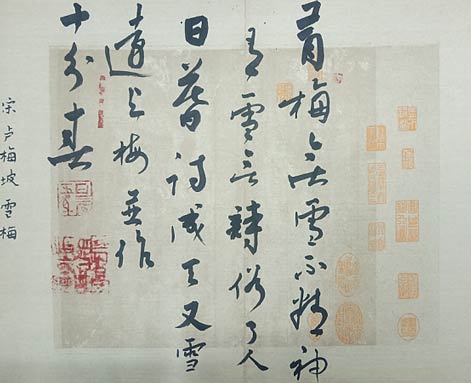 有梅无雪不精神
有雪无詩俗了人
日暮诗成天又雪
与梅並作
十分春
宋卢梅坡雪梅